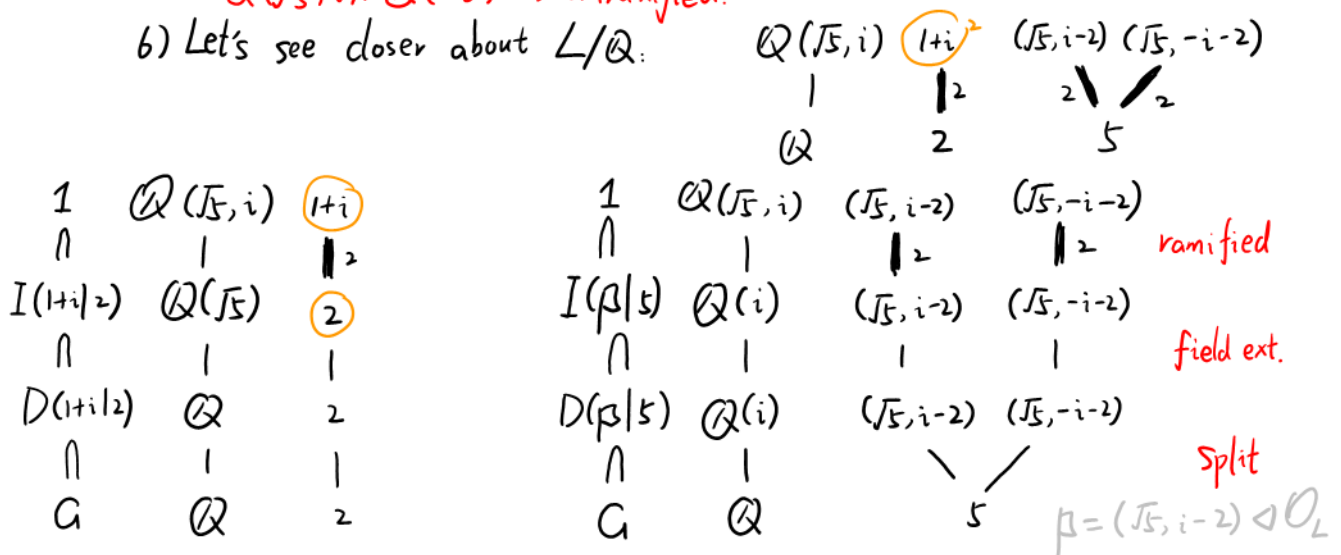 6) Let's see closer about L/Q:
Q(√5, i) (1+i)² (√5, i-2) (√5, -i-2)
2 2 2
Q 2 5
1 Q(√5, i) 1+i
∩ 2
I(1+i|2) Q(√5) 2
∩
D(1+i|2) Q 2
∩
G Q 2
1 Q(√5, i) (√5, i-2) (√5, -i-2)
∩ 2 2 ramified
I(β|5) Q(i) (√5, i-2) (√5, -i-2)
∩ field ext.
D(β|5) Q(i) (√5, i-2) (√5, -i-2)
∩ split
G Q 5
β = (√5, i-2) ◁ O_L